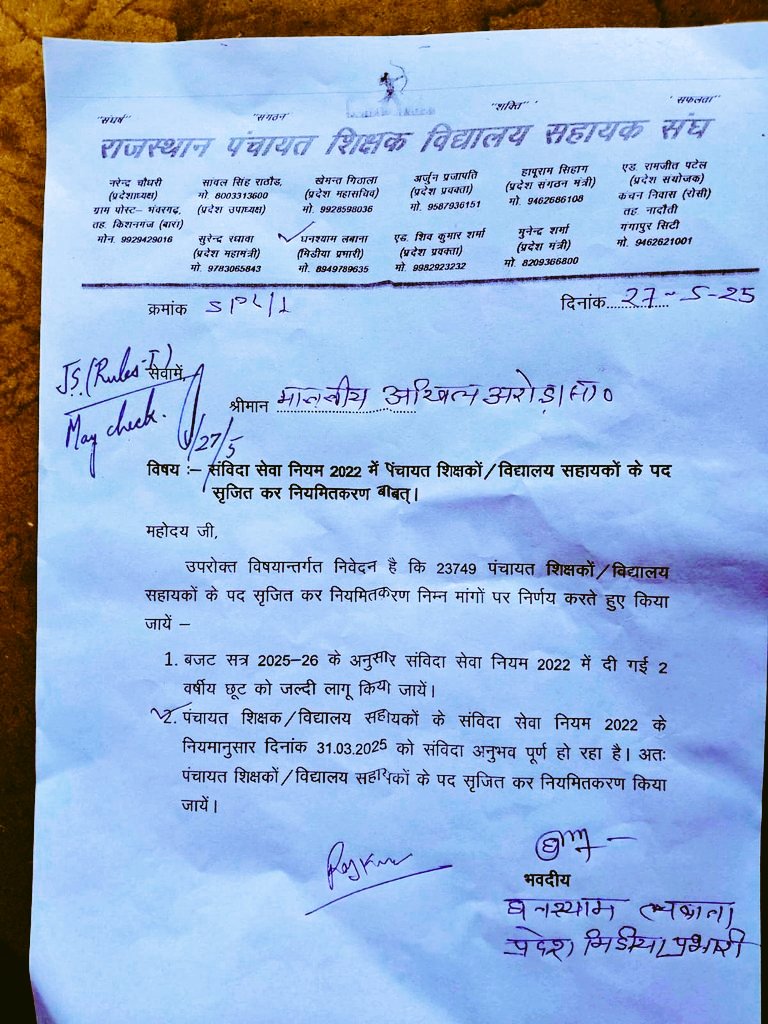 "संघर्ष" "संगठन" "शक्ति" "सफलता"
राजस्थान पंचायत शिक्षक विद्यालय सहायक संघ
नरेन्द्र चौधरी
(प्रदेशाध्यक्ष)
ग्राम पोस्ट– भंवरगढ़,
तह. किशनगंज (बारा)
मोन. 9929429016
सांवल सिंह राठौड़,
मो. 8003313600
(प्रदेश उपाध्यक्ष)
सुरेन्द्र रधावा
(प्रदेश महामंत्री)
मो. 9783065843
खेमन्त गिठाला
(प्रदेश महासचिव)
मो. 9928598036
घनश्याम लबाना
(मिडीया प्रभारी)
मो. 8949789635
अर्जुन प्रजापति
(प्रदेश प्रवक्ता)
मो. 9587936151
एड. शिव कुमार शर्मा
(प्रदेश प्रवक्ता)
मो. 9982923232
हापूराम सिहाग
(प्रदेश संगठन मंत्री)
मो. 9462686108
मुनेन्द्र शर्मा
(प्रदेश मंत्री)
मो. 8209366800
एड. रामजीत पटेल
(प्रदेश संयोजक)
कंचन निवास (रोसी)
तह. नादौती
गंगापुर सिटी
मो. 9462621001
क्रमांक SPL/1 दिनांक 27-5-25
JS (Rules-I)
May check.
27/5
सेवामें,
श्रीमान माननीय अखिल अरोड़ा सा०
विषय :– संविदा सेवा नियम 2022 में पंचायत शिक्षकों/विद्यालय सहायकों के पद
सृजित कर नियमितकरण बाबत्।
महोदय जी,
उपरोक्त विषयान्तर्गत निवेदन है कि 23749 पंचायत शिक्षकों/विद्यालय
सहायकों के पद सृजित कर नियमितकरण निम्न मांगों पर निर्णय करते हुए किया
जायें –
1. बजट सत्र 2025–26 के अनुसार संविदा सेवा नियम 2022 में दी गई 2
वर्षीय छूट को जल्दी लागू किया जायें।
2. पंचायत शिक्षक/विद्यालय सहायकों के संविदा सेवा नियम 2022 के
नियमानुसार दिनांक 31.03.2025 को संविदा अनुभव पूर्ण हो रहा है। अतः
पंचायत शिक्षकों/विद्यालय सहायकों के पद सृजित कर नियमितकरण किया
जायें।
भवदीय
घनश्याम लबाना
प्रदेश मिडीया प्रभारी